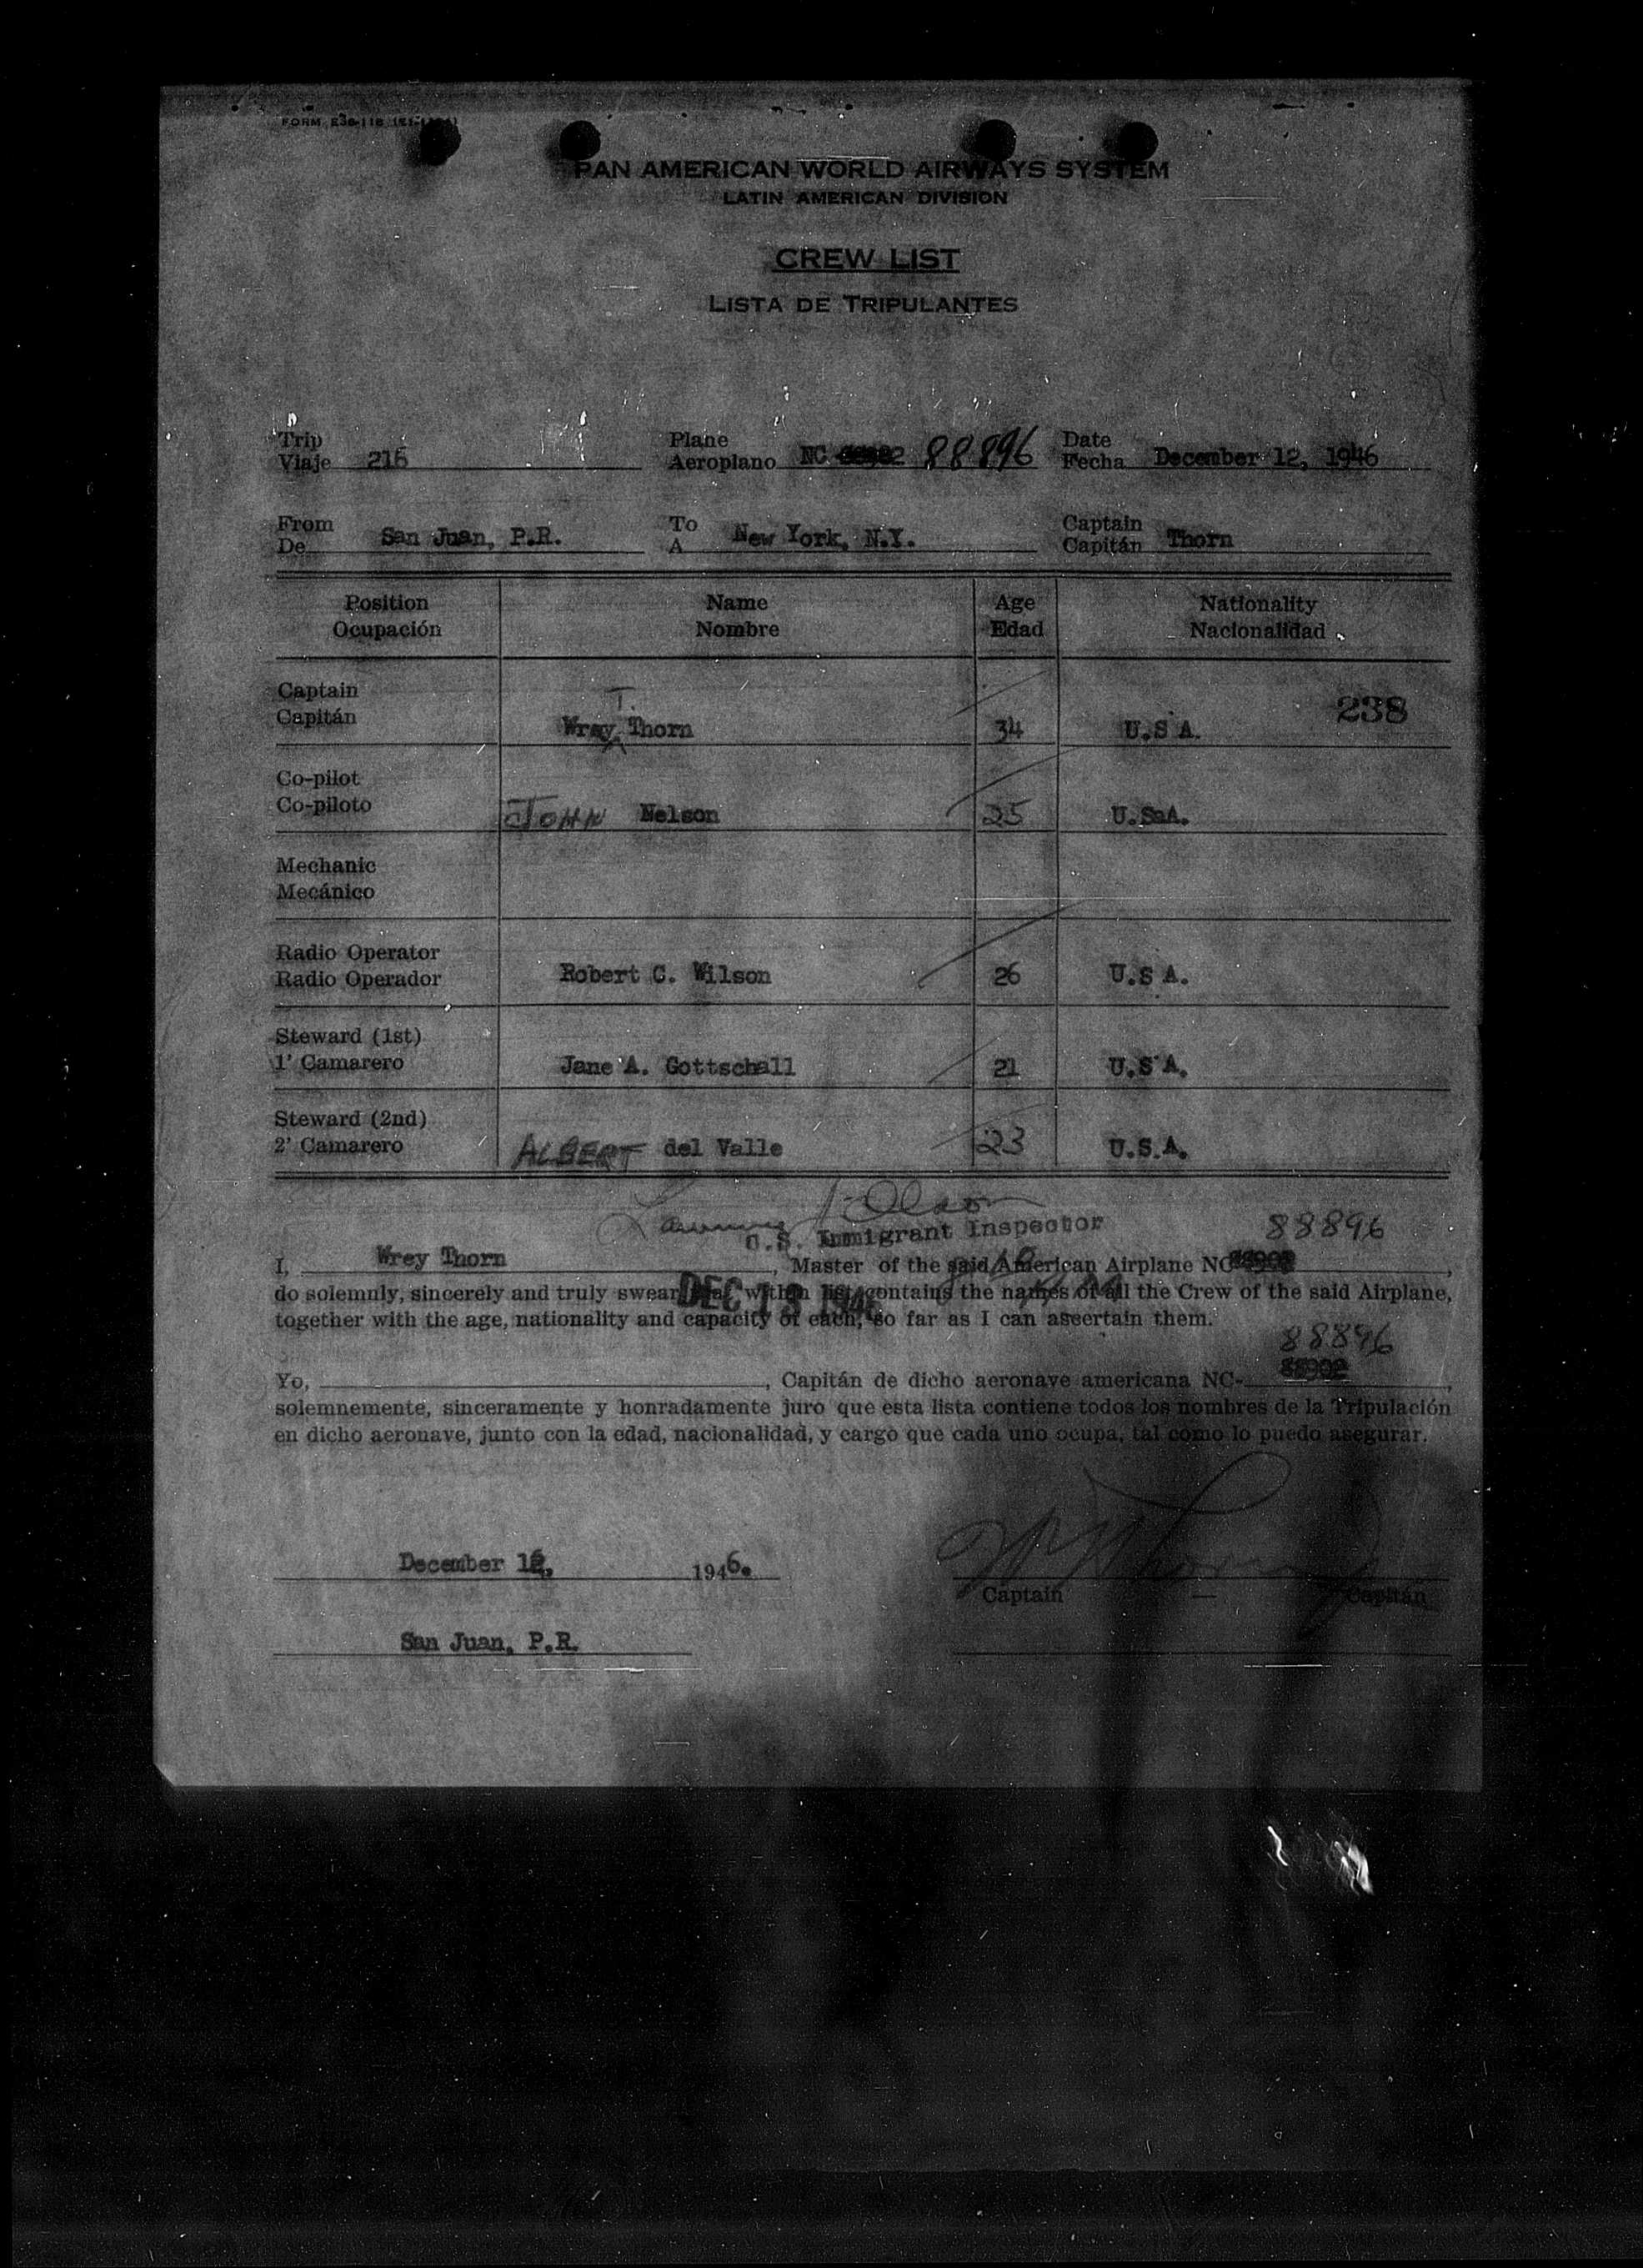 PAN AMERICAN WORLD AIRWAYS SYSTEM
LATIN AMERICAN DIVISION
CREW LIST
LISTA DE TRIPULANTES
Trip
Viaje 216
Plane
Aeroplano NC 88896
Date
Fecha December 12, 1946
From
De San Juan, P.R.
To
A New York, N.Y.
Captain
Capitán Thorn
Position Name Age Nationality
Ocupación Nombre Edad Nacionalidad
Captain
Capitán Wrey T. Thorn 34 U.S A. 238
Co-pilot
Co-piloto JOHN Nelson 25 U.S.A.
Mechanic
Mecánico
Radio Operator
Radio Operador Robert C. Wilson 26 U.S A.
Steward (1st)
1' Camarero Jane A. Gottschall 21 U.S A.
Steward (2nd)
2' Camarero ALBERT del Valle 23 U.S.A.
Olson
U.S. Immigrant Inspector 88896
I, Wrey Thorn, Master of the said American Airplane NC 88902,
DEC 13 1946
do solemnly, sincerely and truly swear that within list contains the names of all the Crew of the said Airplane,
together with the age, nationality and capacity of each, so far as I can ascertain them.
88896
Yo, , Capitán de dicho aeronave americana NC- 88902,
solemnemente, sinceramente y honradamente juro que esta lista contiene todos los nombres de la Tripulación
en dicho aeronave, junto con la edad, nacionalidad, y cargo que cada uno ocupa, tal como lo puedo asegurar.
December 12, 1946.
Captain — Capitán
San Juan, P.R.